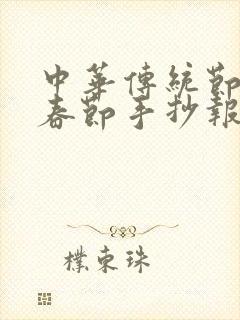 中華傳統節
春節手抄報
樸東珠